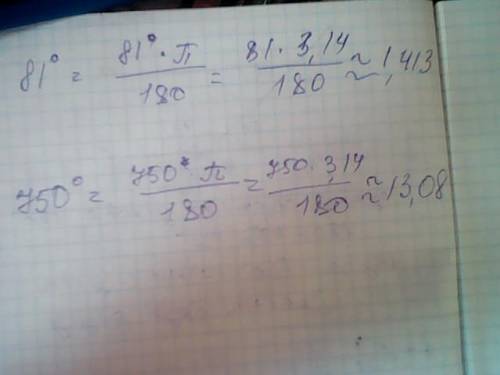 81° = 81° · П / 180 = 81 · 3,14 / 180 ≈ 1,413
750° = 750° · П / 180 = 750 · 3,14 / 180 ≈ 13,08